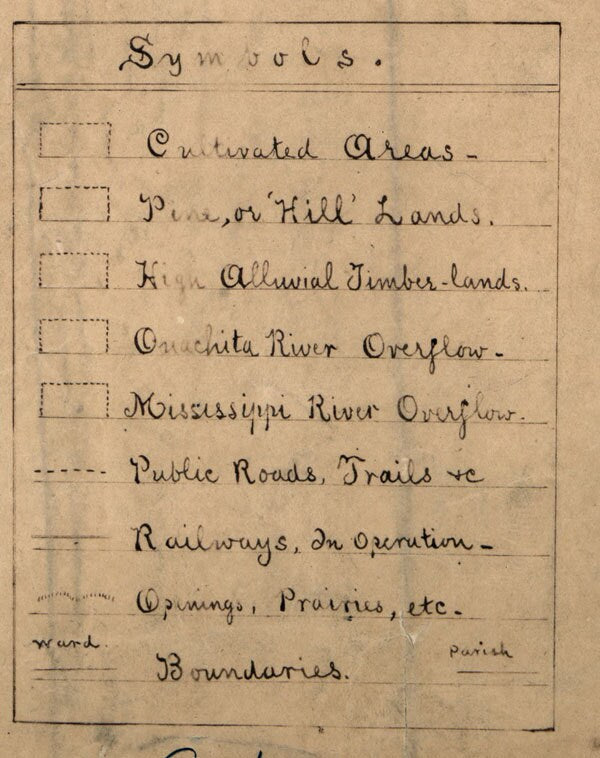 Symbols.
Cultivated Areas-
Pine, or 'Hill' Lands.
High Alluvial Timber-lands.
Ouachita River Overflow-
Mississippi River Overflow.
Public Roads, Trails &c
Railways, In Operation-
Openings, Prairies, etc-
Ward. Boundaries. Parish